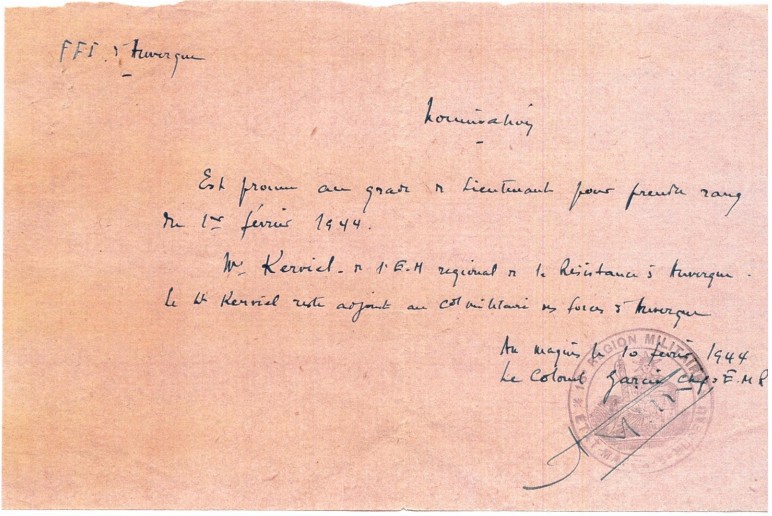 FFI d'Auvergne
Nomination
Est promu au grade de Lieutenant pour prendre rang
du 1er février 1944.
Kerviel de l'E.M régional de la Résistance d'Auvergne.
Le Kerviel reste adjoint au militaire des forces d'Auvergne
Au maquis le 10 février 1944
Le Colonel Garcie E.M.R
REGION MILITAIRE